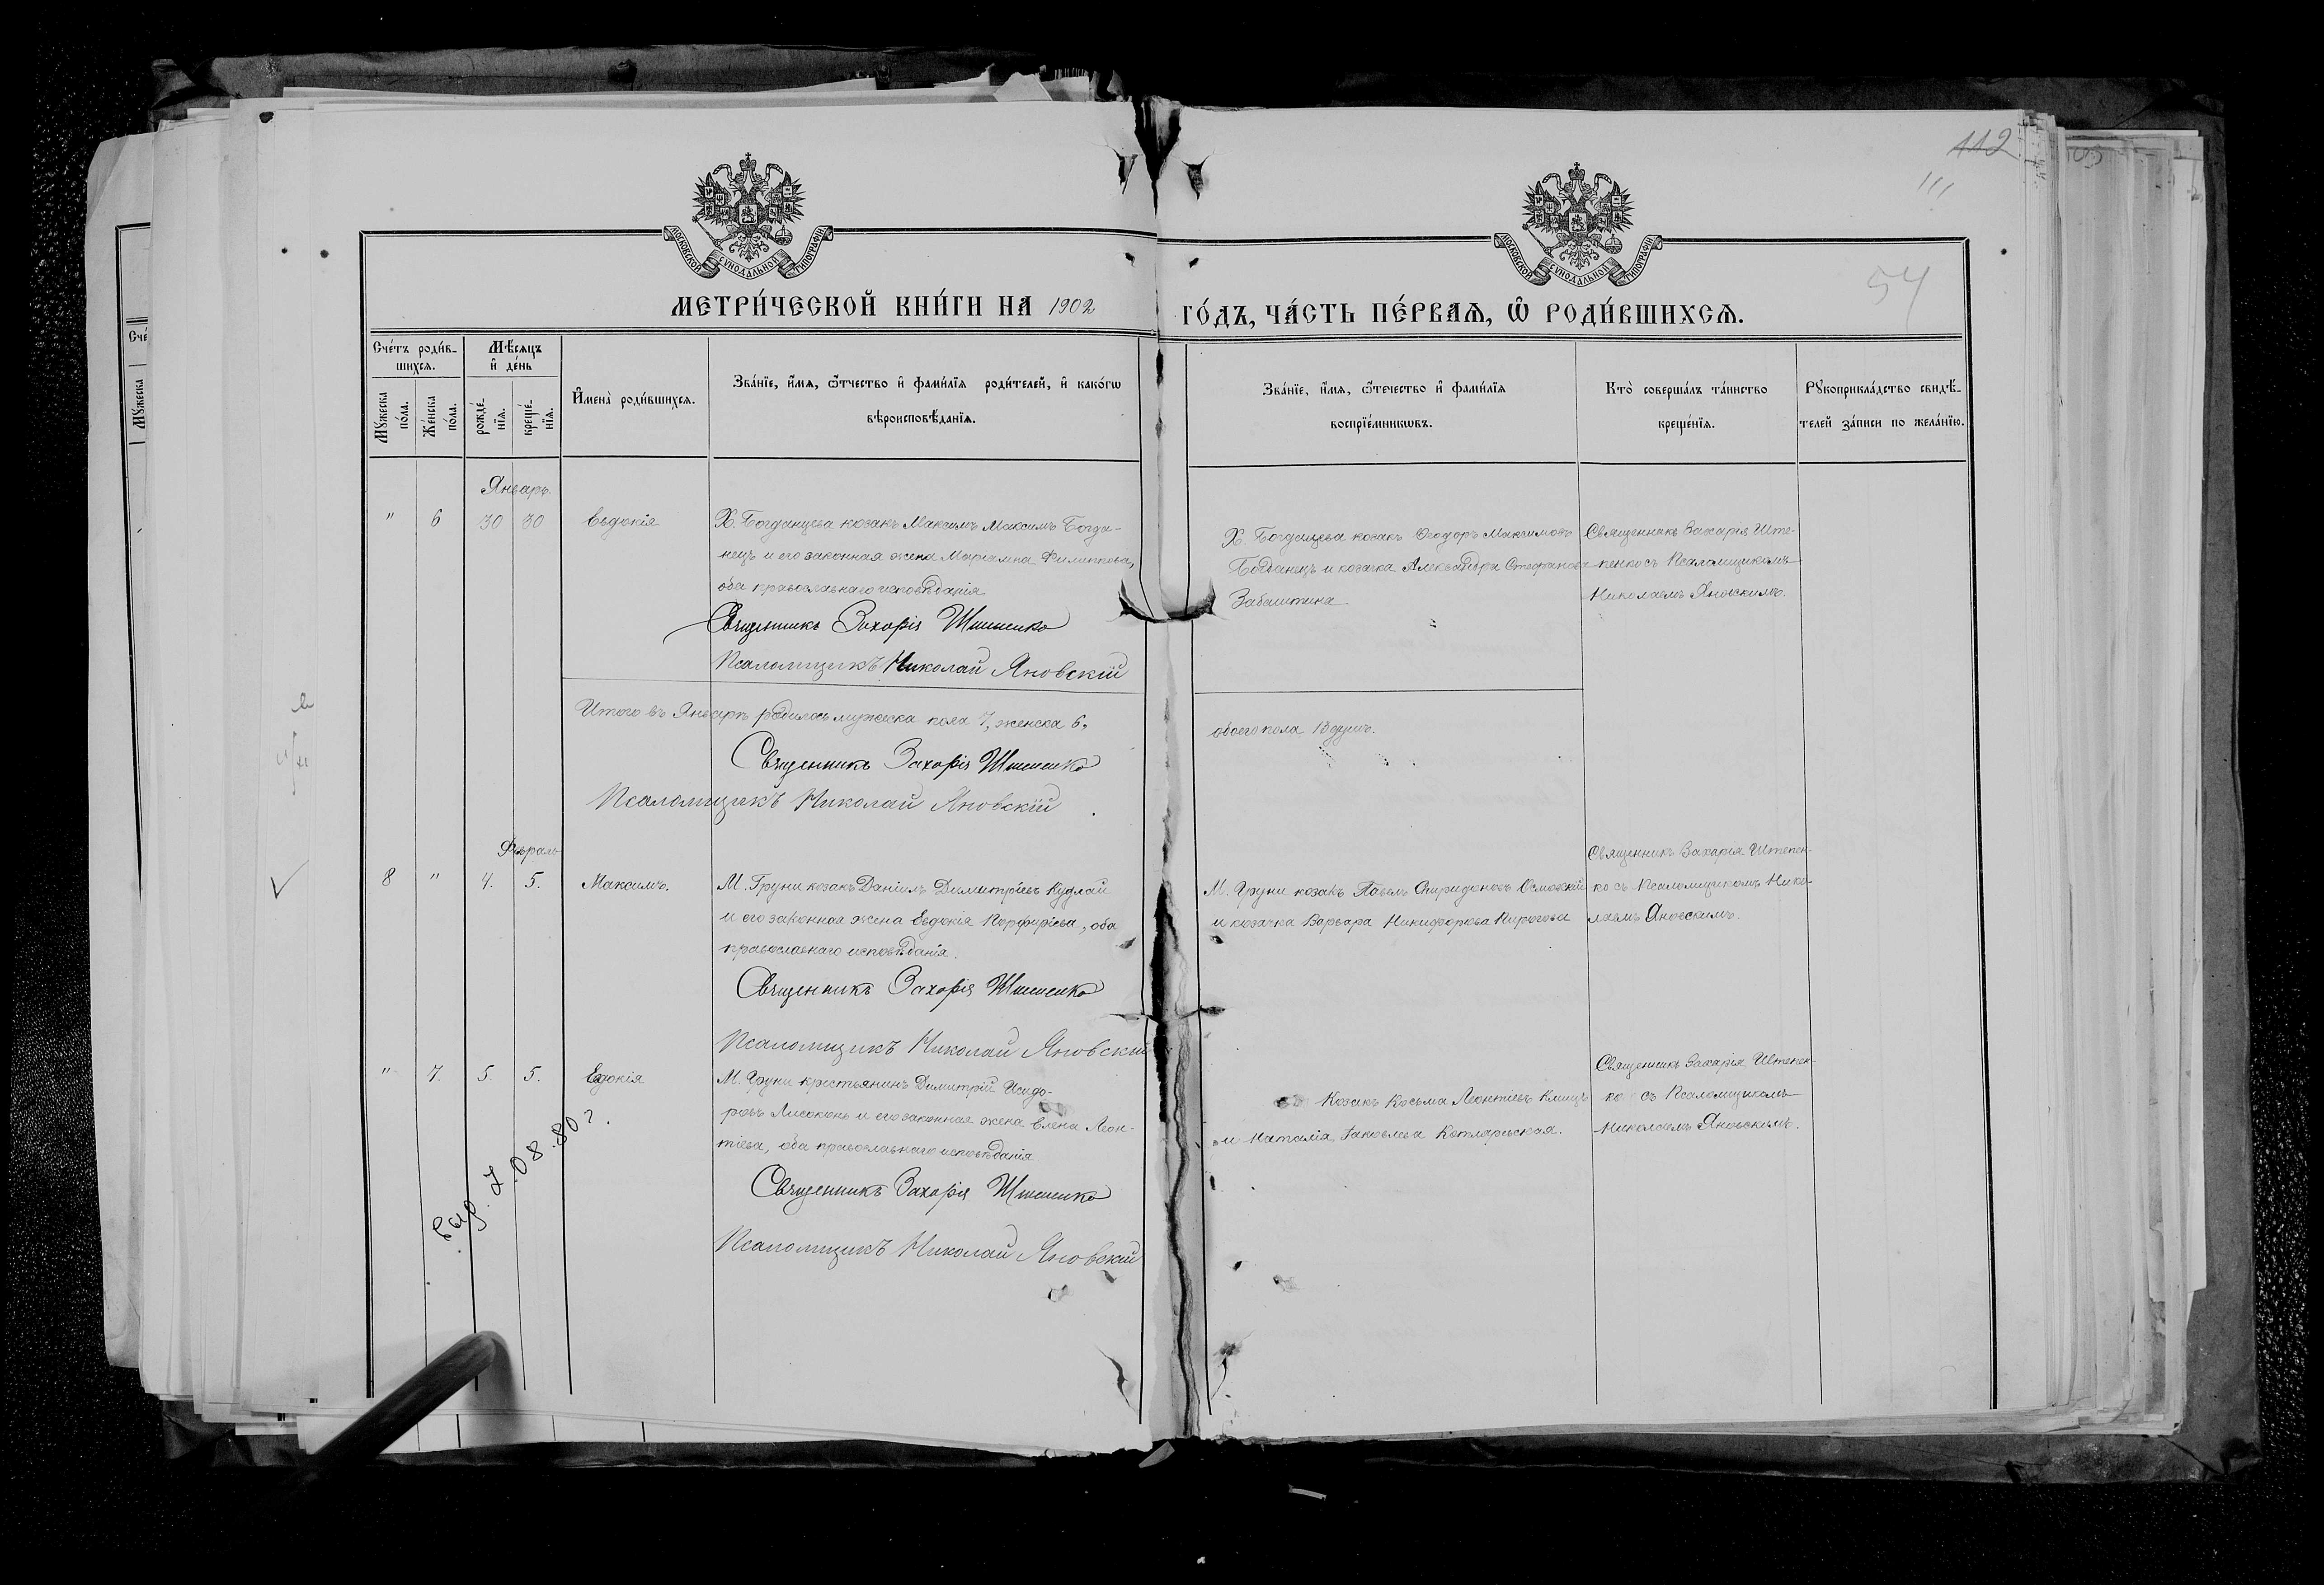 112
111
54
МОСКОВСКОЙ СѴНОДАЛЬНОЙ ТИПОГРАФІИ
МОСКОВСКОЙ СѴНОДАЛЬНОЙ ТИПОГРАФІИ
МЕТРИ́ЧЕСКОЙ КНИ́ГИ НА 1902 ГО́ДЪ, ЧА́СТЬ ПЕ́РВАѦ, Ѡ҆ РОДИ́ВШИХСѦ.
Сче́тъ роди́вшихсѧ.
Мѣ́сѧцъ и҆ де́нь
Мꙋ́жеска по́ла.
Же́нска по́ла.
рожде́нїѧ.
креще́нїѧ.
И҆мена̀ роди́вшихсѧ.
Зва́нїе, и҆́мѧ, ѻ҆́тчество и҆ фами́лїѧ роди́телей, и҆ како́гѡ
вѣроисповѣ́данїѧ.
Зва́нїе, и҆́мѧ, ѻ҆́течество и҆ фами́лїѧ
воспрїе́мникѡвъ.
Кто̀ соверша́лъ та́инство
креще́нїѧ.
Рꙋкоприкла́дство свидѣ́-
телей за́писи по жела́нїю.
Январь.
" 6 30 30 Евдокія
Х. Богданцева козакъ Максимъ Максимъ Богда-
нецъ и его законная жена Маріамна Филиппова,
оба православнаго исповѣданія
Священникъ Захарія
Псаломщикъ Николай Яновскій
Х. Богданцева козакъ Ѳеодоръ Максимовъ
Богданецъ и козачка Александра Стефанова
Забаштина
Священникъ Захарія Ште-
пенко съ Псаломщикомъ
Николаемъ Яновскимъ.
Итого въ Январѣ родилось мужеска пола 7, женска 6,
обоего пола 13 душъ.
Священникъ Захарія
Псаломщикъ Николай Яновскій
Февраль
8 " 4. 5. Максимъ.
М. Груни козакъ Даніилъ Димитріевъ Кудлай
и его законная жена Евдокія Порфиріева, оба
православнаго исповѣданія.
Священникъ Захарія
Псаломщикъ Николай Яновскій
М. Груни козакъ Павелъ Спиридоновъ
и козачка Варвара Никифорова Пирогова
Священникъ Захарія Штепен-
ко съ Псаломщикомъ Нико-
лаемъ Яновскимъ.
" 7. 5. 5. Евдокія
М. Груни крестьянинъ Димитрій Исидо-
ровъ Лисоконь и его законная жена Елена Леон-
тіева, оба православнаго исповѣданія
Священникъ Захарія
Псаломщикъ Николай Яновскій
Козакъ Косьма Леонтіевъ Клищъ
и Наталія Іаковлева Котляревская.
Священникъ Захарія Штепен-
ко съ Псаломщикомъ
Николаемъ Яновскимъ.
выд. 7.08.80 г.